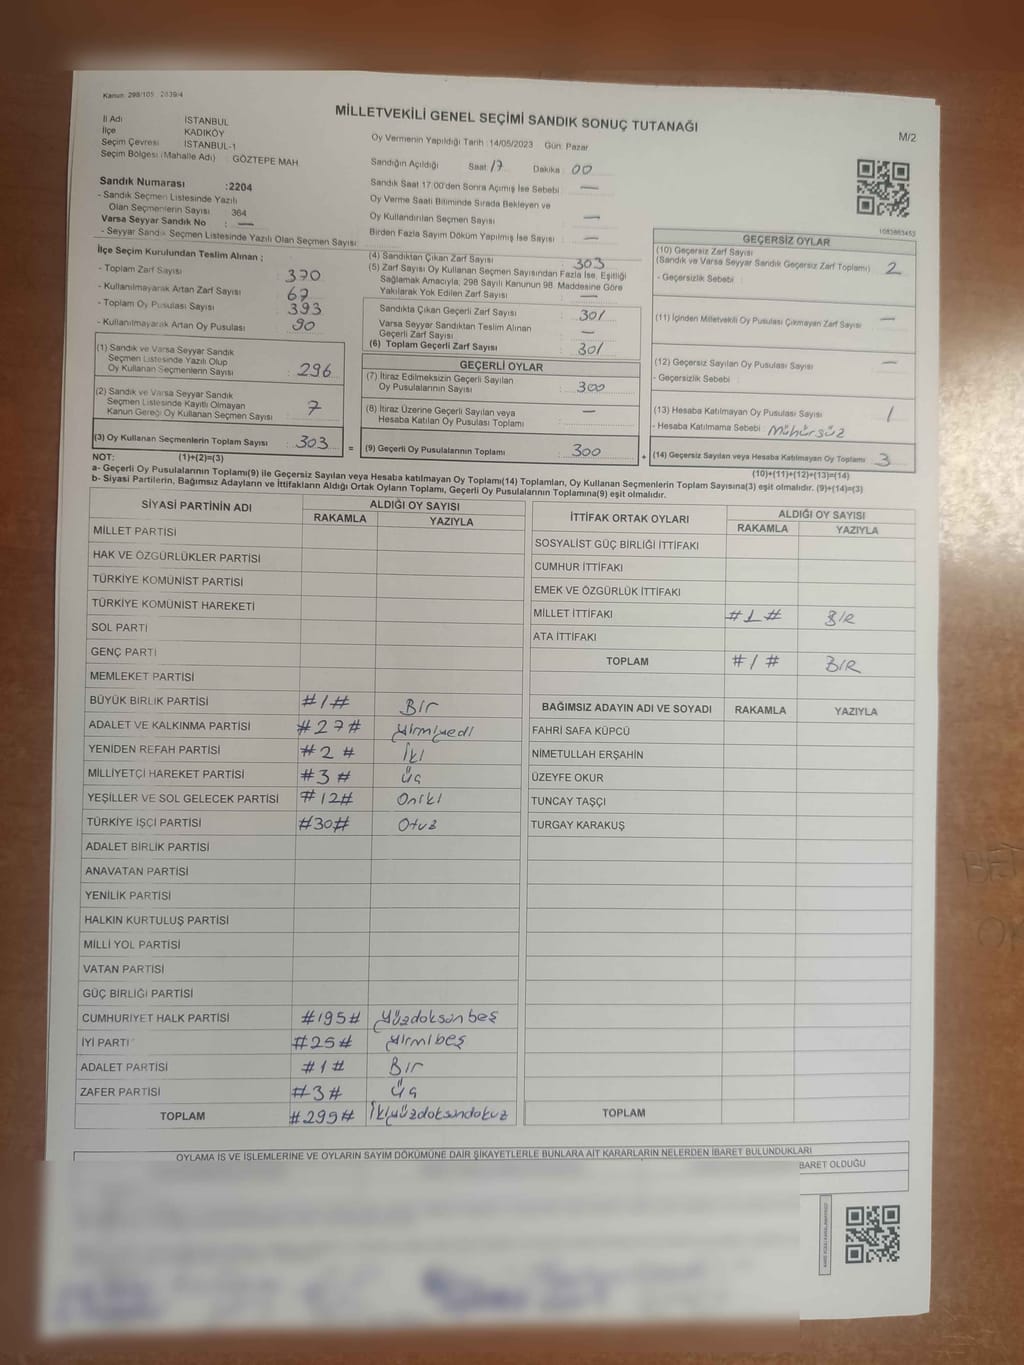 Kanun 298/105 2839/4
MİLLETVEKİLİ GENEL SEÇİMİ SANDIK SONUÇ TUTANAĞI
M/2
İl Adı İSTANBUL
İlçe KADIKÖY
Seçim Çevresi İSTANBUL-1
Seçim Bölgesi (Mahalle Adı) : GÖZTEPE MAH.
Sandık Numarası :2204
- Sandık Seçmen Listesinde Yazılı
Olan Seçmenlerin Sayısı 364
Varsa Seyyar Sandık No : —
- Seyyar Sandık Seçmen Listesinde Yazılı Olan Seçmen Sayısı:
Oy Vermenin Yapıldığı Tarih :14/05/2023 Gün: Pazar
Sandığın Açıldığı Saat 17 Dakika : 00
Sandık Saat 17:00'den Sonra Açımış İse Sebebi : —
Oy Verme Saati Bitiminde Sırada Bekleyen ve
Oy Kullandırılan Seçmen Sayısı : —
Birden Fazla Sayım Döküm Yapılmış İse Sayısı : —
1083863453
İlçe Seçim Kurulundan Teslim Alınan ;
- Toplam Zarf Sayısı : 370
- Kullanılmayarak Artan Zarf Sayısı : 67
- Toplam Oy Pusulası Sayısı : 393
- Kullanılmayarak Artan Oy Pusulası : 90
(1) Sandık ve Varsa Seyyar Sandık
Seçmen Listesinde Yazılı Olup
Oy Kullanan Seçmenlerin Sayısı : 296
(2) Sandık ve Varsa Seyyar Sandık
Seçmen Listesinde Kayıtlı Olmayan
Kanun Gereği Oy Kullanan Seçmen Sayısı : 7
(3) Oy Kullanan Seçmenlerin Toplam Sayısı : 303
(4) Sandıktan Çıkan Zarf Sayısı : 303
(5) Zarf Sayısı Oy Kullanan Seçmen Sayısından Fazla İse, Eşitliği
Sağlamak Amacıyla, 298 Sayılı Kanunun 98. Maddesine Göre
Yakılarak Yok Edilen Zarf Sayısı : —
Sandıkta Çıkan Geçerli Zarf Sayısı : 301
Varsa Seyyar Sandıktan Teslim Alınan
Geçerli Zarf Sayısı : —
(6) Toplam Geçerli Zarf Sayısı : 301
GEÇERLİ OYLAR
(7) İtiraz Edilmeksizin Geçerli Sayılan
Oy Pusulalarının Sayısı : 300
(8) İtiraz Üzerine Geçerli Sayılan veya
Hesaba Katılan Oy Pusulası Toplamı : —
= (9) Geçerli Oy Pusulalarının Toplamı : 300
GEÇERSİZ OYLAR
(10) Geçersiz Zarf Sayısı
(Sandık ve Varsa Seyyar Sandık Geçersiz Zarf Toplamı) : 2
- Geçersizlik Sebebi :
(11) İçinden Milletvekili Oy Pusulası Çıkmayan Zarf Sayısı : —
(12) Geçersiz Sayılan Oy Pusulası Sayısı : —
- Geçersizlik Sebebi :
(13) Hesaba Katılmayan Oy Pusulası Sayısı : 1
- Hesaba Katılmama Sebebi : Mühürsüz
+ (14) Geçersiz Sayılan veya Hesaba Katılmayan Oy Toplamı : 3
NOT: (1)+(2)=(3)
(10)+(11)+(12)+(13)=(14)
a- Geçerli Oy Pusulalarının Toplamı(9) ile Geçersiz Sayılan veya Hesaba katılmayan Oy Toplamı(14) Toplamları, Oy Kullanan Seçmenlerin Toplam Sayısına(3) eşit olmalıdır. (9)+(14)=(3)
b- Siyasi Partilerin, Bağımsız Adayların ve İttifakların Aldığı Ortak Oyların Toplamı, Geçerli Oy Pusulalarının Toplamına(9) eşit olmalıdır.
SİYASİ PARTİNİN ADI ALDIĞI OY SAYISI
RAKAMLA YAZIYLA
MİLLET PARTİSİ
HAK VE ÖZGÜRLÜKLER PARTİSİ
TÜRKİYE KOMÜNİST PARTİSİ
TÜRKİYE KOMÜNİST HAREKETİ
SOL PARTİ
GENÇ PARTİ
MEMLEKET PARTİSİ
BÜYÜK BİRLİK PARTİSİ #1# Bir
ADALET VE KALKINMA PARTİSİ #27# Yirmiyedi
YENİDEN REFAH PARTİSİ #2# İki
MİLLİYETÇİ HAREKET PARTİSİ #3# Üç
YEŞİLLER VE SOL GELECEK PARTİSİ #12# Oniki
TÜRKİYE İŞÇİ PARTİSİ #30# Otuz
ADALET BİRLİK PARTİSİ
ANAVATAN PARTİSİ
YENİLİK PARTİSİ
HALKIN KURTULUŞ PARTİSİ
MİLLİ YOL PARTİSİ
VATAN PARTİSİ
GÜÇ BİRLİĞİ PARTİSİ
CUMHURİYET HALK PARTİSİ #195# Yüzdoksanbeş
İYİ PARTİ #25# Yirmibeş
ADALET PARTİSİ #1# Bir
ZAFER PARTİSİ #3# Üç
TOPLAM #299# İkiyüzdoksandokuz
İTTİFAK ORTAK OYLARI ALDIĞI OY SAYISI
RAKAMLA YAZIYLA
SOSYALİST GÜÇ BİRLİĞİ İTTİFAKI
CUMHUR İTTİFAKI
EMEK VE ÖZGÜRLÜK İTTİFAKI
MİLLET İTTİFAKI #1# BİR
ATA İTTİFAKI
TOPLAM #1# BİR
BAĞIMSIZ ADAYIN ADI VE SOYADI RAKAMLA YAZIYLA
FAHRİ SAFA KÜPCÜ
NİMETULLAH ERŞAHİN
ÜZEYFE OKUR
TUNCAY TAŞÇI
TURGAY KARAKUŞ
TOPLAM
OYLAMA İŞ VE İŞLEMLERİNE VE OYLARIN SAYIM DÖKÜMÜNE DAİR ŞİKAYETLERLE BUNLARA AİT KARARLARIN NELERDEN İBARET BULUNDUKLARI
BARET OLDUĞU